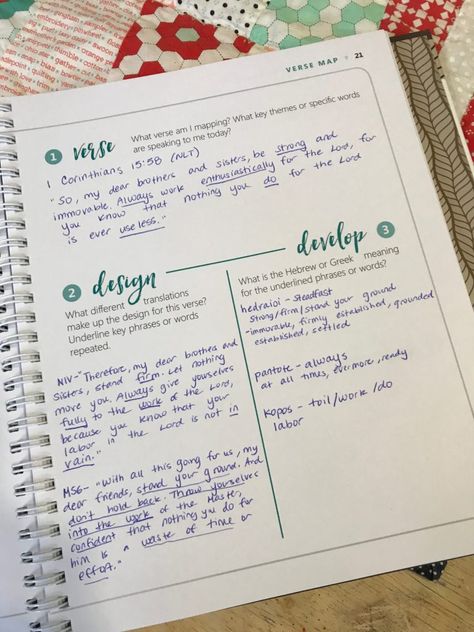 VERSE MAP • 21
1 verse
What verse am I mapping? What key themes or specific words
are speaking to me today?
1 Corinthians 15:58 (NLT)
"So, my dear brothers and sisters, be strong and
immovable. Always work enthusiastically for the Lord, for
you know that nothing you do for the Lord
is ever useless."
2 design
What different translations
make up the design for this verse?
Underline key phrases or words
repeated.
NIV-"Therefore, my dear brothers and
sisters, stand firm. Let nothing
move you. Always give yourselves
fully to the work of the Lord,
because you know that your
labor in the Lord is not in
vain."
MSG- "With all this going for us, my
dear friends, stand your ground. And
don't hold back. Throw yourselves
into the work of the Master,
confident that nothing you do for
him is a waste of time or
effort."
develop 3
What is the Hebrew or Greek meaning
for the underlined phrases or words?
hedraioi - steadfast
strong/firm/stand your ground
-immovable, firmly established, grounded
established, settled
pantote - always
at all times, evermore, ready
kopos - toil/work/do
labor